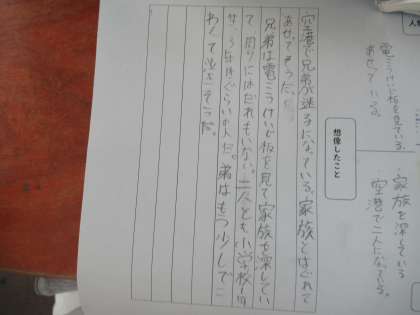 空港で兄弟が迷子になっている。家族とはぐれて
あせてそうだ。
兄弟は電こうけいじ板を見て家族を探してい
て周りにはだれもいない。二人とも小学校
ぐらいの人だ。弟はもう少しでこ
わくてなきそうだ。
人
電こうけいじ板を見ている。
あせている。
想像したこと
家族を探している
空港で二人になってる。